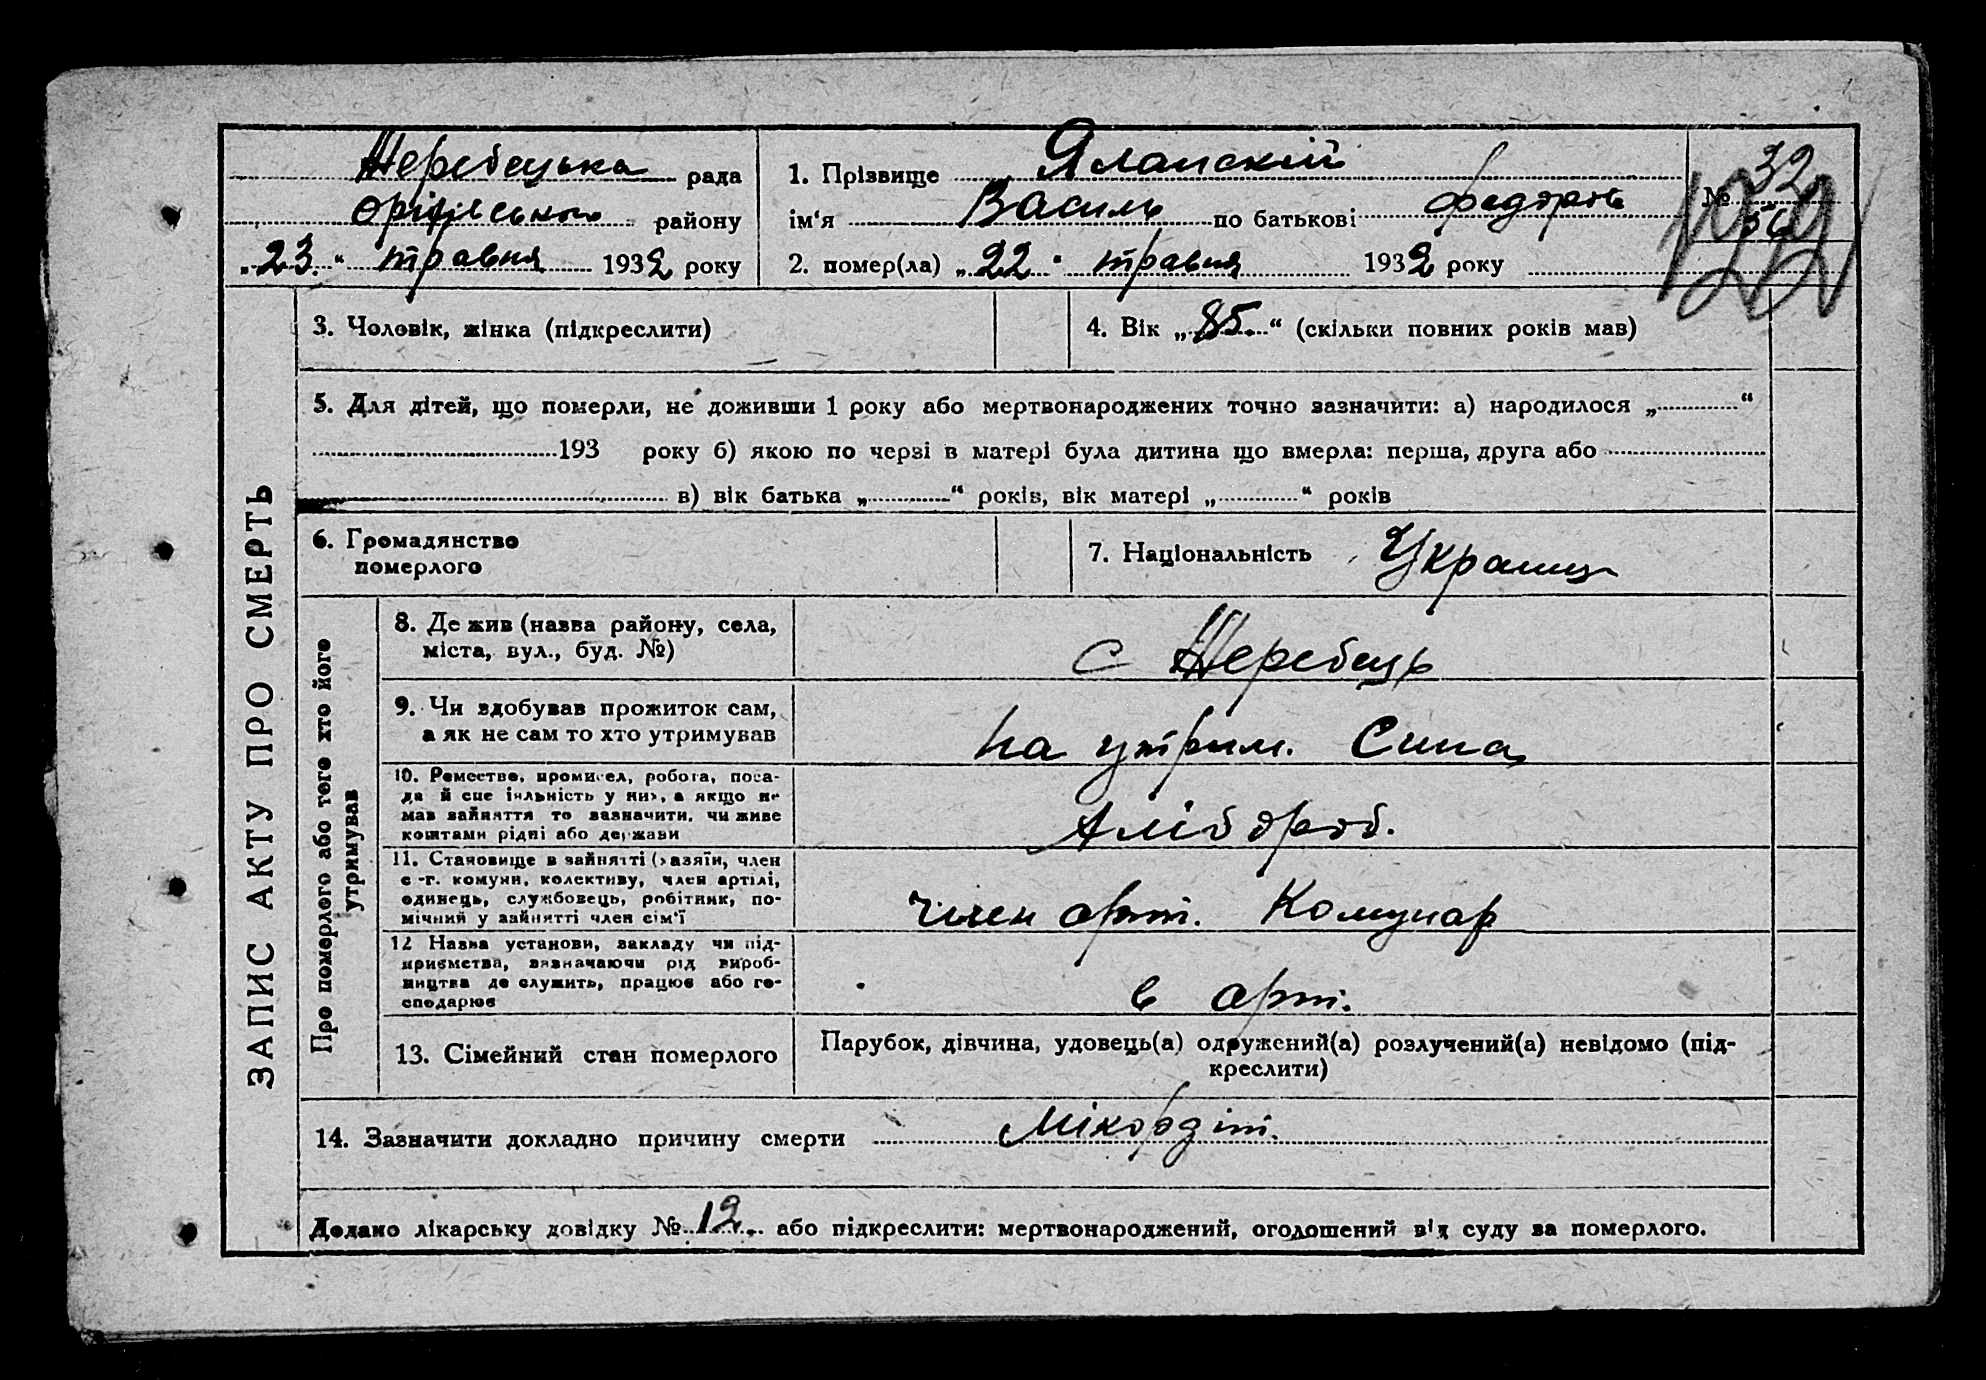 Жеребецька рада
Оріхівського району
„23“ травня 1932 року
1. Прізвище Яланский
ім‘я Василь по батькові Федоров
2. помер(ла) „22“ травня 1932 року
№ 32
56
122
ЗАПИС АКТУ ПРО СМЕРТЬ
3. Чоловік, жінка (підкреслити)
4. Вік „85.“ (скільки повних років мав)
5. Для дітей, що померли, не доживши 1 року або мертвонароджених точно зазначити: а) народилося „ “
193 року б) якою по черзі в матері була дитина що вмерла: перша, друга або
в) вік батька „ “ років, вік матері „ “ років
6. Громадянство
померлого
7. Національність Українц
Про померлого або того хто його
утримував
8. Де жив (назва району, села,
міста, вул., буд. №)
с Жеребець
9. Чи здобував прожиток сам,
а як не сам то хто утримував
На утрим. Сина
10. Ремество, промисел, робота, поса-
да й спеціяльність у них, а якщо не
мав зайняття то зазначити, чи живе
коштами рідні або держави
Хлібороб.
11. Становище в зайнятті (хазяїн, член
с-г. комуни, колективу, член артілі,
одинець, службовець, робітник, по-
мічний у зайнятті член сім'ї
член арт. Комунар
12 Назва установи, закладу чи під-
приємства, визначаючи рід вироб-
ництва де служить, працює або го-
сподарює
в арт.
13. Сімейний стан померлого
Парубок, дівчина, удовець(а) одружений(а) розлучений(а) невідомо (під-
креслити)
14. Зазначити докладно причину смерти Мікордіт.
Додано лікарську довідку № 12 або підкреслити: мертвонароджений, оголошений від суду за померлого.